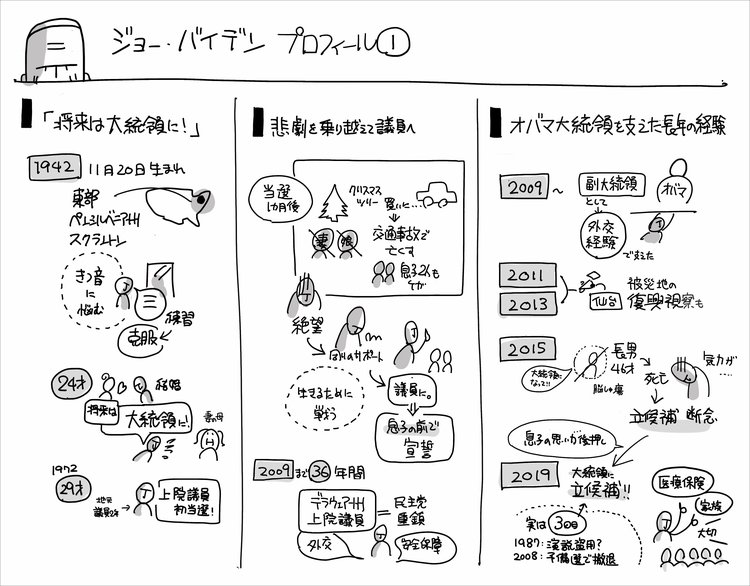 ジョー・バイデン プロフィール①
「将来は大統領に！」
1942 11月20日生まれ
東部
ペンシルベニア州
スクラントン
きつ音
に
悩む
練習
克服
24才
結婚
将来は
大統領に！
妻の母
1972
29才
地元
議員2年
J
上院議員
初当選！
悲劇を乗り越えて議員へ
当選
1カ月後
クリスマス
ツリー
買いに…
妻
娘
交通事故で
亡くす
息子2人も
ケガ
絶望
まわりのサポート
生きるために
戦う
議員に。
息子の前で
宣誓
2009まで36年間
デラウェア州
上院議員
=
民主党
重鎮
外交
安全保障
オバマ大統領を支えた長年の経験
2009～
副大統領
として
オバマ
外交
経験
で支えた
2011
2013
仙台
被災地の
復興視察も
2015
長男
46才
大統領に
なって!!
脳しゅ瘍
死亡
気力が…
立候補 断念
息子の思いが後押し
2019
大統領に
立候補!!
実は 3回目
1987：演説盗用？
2008：予備選で撤退
医療保険
家族
大切